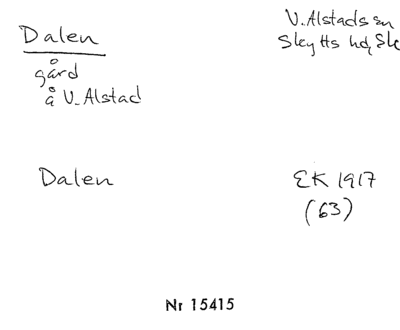 Dalen
gård
å V. Alstad
V. Alstads sn
Skytts hd, Sk
Dalen
EK 1917
(63)
Nr 15415